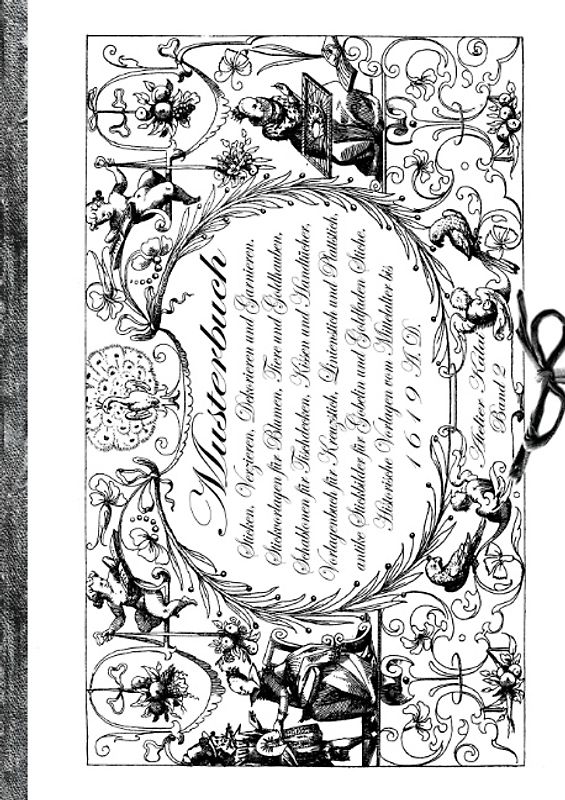 Musterbuch
Sticken, Verzieren, Dekorieren und Garnieren.
Stickvorlagen für Blumen, Tiere und Goldhauben,
Schablonen für Tischdecken, Kissen und Handtücher,
Vorlagenbuch für Kreuzstich, Linienstich und Plattstich,
antike Stickbilder für Gobelin und Goldfaden Stiche,
Historische Vorlagen vom Mittelalter bis
1619 A.D.
Atelier
Band 2